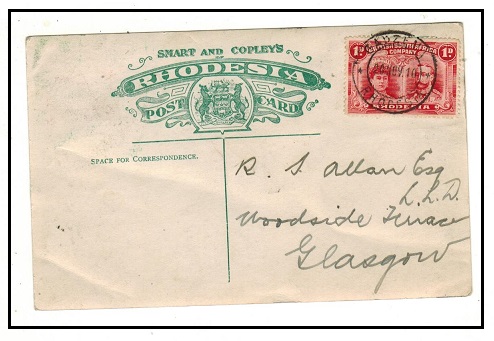 SMART AND COPLEY'S
RHODESIA
POST CARD
SPACE FOR CORRESPONDENCE.
1D 1D
BRITISH SOUTH AFRICA
COMPANY
RHODESIA
R. S. Allan Esq
L.L.D.
Woodside Terrace
Glasgow